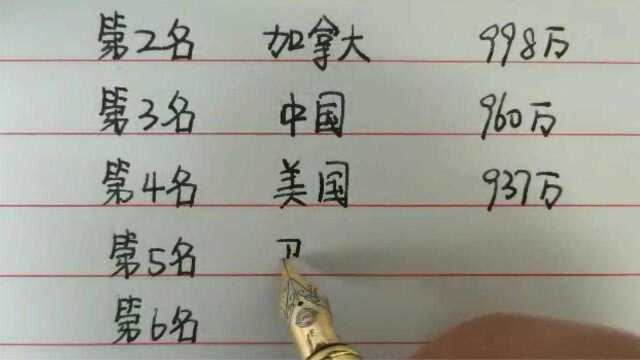 第2名 加拿大 998万
第3名 中国 960万
第4名 美国 937万
第5名
第6名